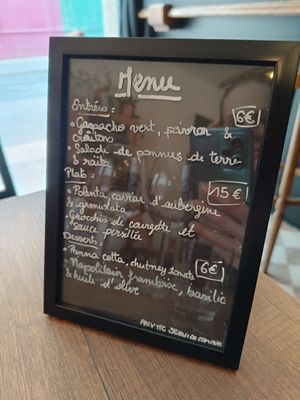 Menu
Entrées : 6€
• Gaspacho vert, poivron &
croûtons
• Salade de pommes de terre
& raita
Plats : 15€
• Polenta, caviar d'aubergine
& gremolata
• Gnocchis de courgette et
sauce persillée
Desserts 6€
• Panna cotta, chutney tomate
• Napolitain framboise, basilic
& huile d'olive
PRIX TTC SERVICE COMPRIS